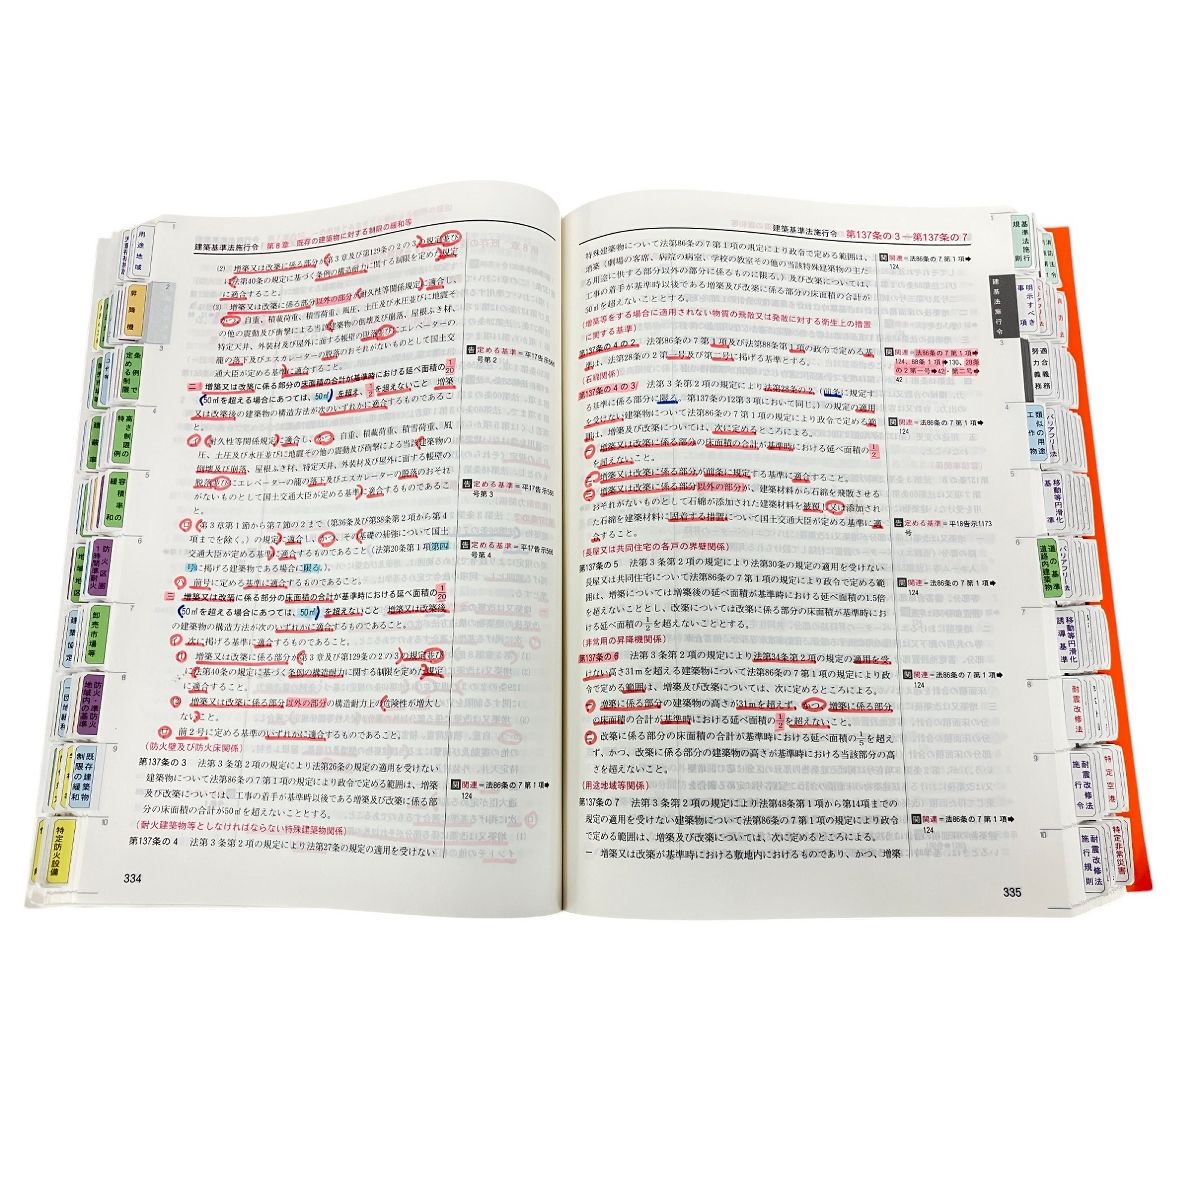 建築基準法施行令 第8章 既存の建築物に対する制限の緩和等
(2) 増築又は改築に係る部分が第3章及び第129条の2の3の規定並び
に法第40条の規定に基づく条例の構造耐力に関する制限を定めた規定
に適合すること。
(3) 増築又は改築に係る部分以外の部分が耐久性等関係規定に適合し、
かつ、自重、積載荷重、積雪荷重、風圧、土圧及び水圧並びに地震そ
の他の震動及び衝撃による当該建築物の倒壊及び崩落、屋根ふき材、
特定天井、外装材及び屋外に面する帳壁の脱落及びエレベーターの
籠の落下及びエスカレーターの脱落のおそれがないものとして国土交
通大臣が定める基準に適合すること。
二 増築又は改築に係る部分の床面積の合計が基準時における延べ面積の1/20
(50㎡を超える場合にあつては、50㎡)を超え、1/2を超えないこと 増築
又は改築後の建築物の構造方法が次のいずれかに適合するものであるこ
と。
イ 耐久性等関係規定に適合し、かつ、自重、積載荷重、積雪荷重、風
圧、土圧及び水圧並びに地震その他の震動及び衝撃による当該建築物の
倒壊及び崩落、屋根ふき材、特定天井、外装材及び屋外に面する帳壁の
脱落並びにエレベーターの籠の落下及びエスカレーターの脱落のおそれ
がないものとして国土交通大臣が定める基準に適合するものであるこ
と。
ロ 第3章第1節から第7節の2まで(第36条及び第38条第2項から第4
項までを除く。)の規定に適合し、かつ、その基礎の補強について国土
交通大臣が定める基準に適合するものであること(法第20条第1項第四
号に掲げる建築物である場合に限る。)。
ハ 前号に定める基準に適合するものであること。
三 増築又は改築に係る部分の床面積の合計が基準時における延べ面積の1/20
(50㎡を超える場合にあつては、50㎡)を超えないこと 増築又は改築後
の建築物の構造方法が次のいずれかに適合するものであること。
イ 次に掲げる基準に適合するものであること。
(1) 増築又は改築に係る部分が第3章及び第129条の2の3の規定並び
に法第40条の規定に基づく条例の構造耐力に関する制限を定めた規定
に適合すること。
(2) 増築又は改築に係る部分以外の部分の構造耐力上の危険性が増大し
ないこと。
ロ 前2号に定める基準のいずれかに適合するものであること。
(防火壁及び防火床関係)
第137条の3 法第3条第2項の規定により法第26条の規定の適用を受けない
建築物について法第86条の7第1項の規定により政令で定める範囲は、増築
及び改築については、工事の着手が基準時以後である増築及び改築に係る部
分の床面積の合計が50㎡を超えないこととする。
(耐火建築物等としなければならない特殊建築物関係)
第137条の4 法第3条第2項の規定により法第27条の規定の適用を受けない
告 定める基準=平17告示566
号第2
告 定める基準=平17告示566
号第3
告 定める基準=平17告示566
号第4
関 関連=法86条の7第1項➡
124
334
建築基準法施行令 第137条の3—第137条の7
特殊建築物について法第86条の7第1項の規定により政令で定める範囲は、
増築(劇場の客席、病院の病室、学校の教室その他の当該特殊建築物の主た
る用途に供する部分以外の部分に係るものに限る。)及び改築については、
工事の着手が基準時以後である増築及び改築に係る部分の床面積の合計が
50㎡を超えないこととする。
(増築等をする場合に適用されない物質の飛散又は発散に対する衛生上の措置
に関する基準)
第137条の4の2 法第86条の7第1項及び法第88条第1項の政令で定める基
準は、法第28条の2第一号及び第二号に掲げる基準とする。
(石綿関係)
第137条の4の3 法第3条第2項の規定により法第28条の2(前条に規定す
る基準に係る部分に限る。第137条の12第3項において同じ。)の規定の適用
を受けない建築物について法第86条の7第1項の規定により政令で定める範
囲は、増築及び改築については、次に定めるところによる。
一 増築又は改築に係る部分の床面積の合計が基準時における延べ面積の1/2
を超えないこと。
二 増築又は改築に係る部分が前条に規定する基準に適合すること。
三 増築又は改築に係る部分以外の部分が、建築材料から石綿を飛散させる
おそれがないものとして石綿が添加された建築材料を被覆し又は添加され
た石綿を建築材料に固着する措置について国土交通大臣が定める基準に適
合すること。
(長屋又は共同住宅の各戸の界壁関係)
第137条の5 法第3条第2項の規定により法第30条の規定の適用を受けない
長屋又は共同住宅について法第86条の7第1項の規定により政令で定める範
囲は、増築については増築後の延べ面積が基準時における延べ面積の1.5倍
を超えないこととし、改築については改築に係る部分の床面積が基準時にお
ける延べ面積の1/2を超えないこととする。
(非常用の昇降機関係)
第137条の6 法第3条第2項の規定により法第34条第2項の規定の適用を受
けない高さ31mを超える建築物について法第86条の7第1項の規定により政
令で定める範囲は、増築及び改築については、次に定めるところによる。
一 増築に係る部分の建築物の高さが31mを超えず、かつ、増築に係る部分
の床面積の合計が基準時における延べ面積の1/2を超えないこと。
二 改築に係る部分の床面積の合計が基準時における延べ面積の1/5を超え
ず、かつ、改築に係る部分の建築物の高さが基準時における当該部分の高
さを超えないこと。
(用途地域等関係)
第137条の7 法第3条第2項の規定により法第48条第1項から第14項までの
規定の適用を受けない建築物について法第86条の7第1項の規定により政令
で定める範囲は、増築及び改築については、次に定めるところによる。
一 増築又は改築が基準時における敷地内におけるものであり、かつ、増築
関 関連=法86条の7第1項➡
124
関 関連=法86条の7第1項➡
124、88条1項➡130、28条
の2第一号➡42・第二号➡
42
関 関連=法86条の7第1項➡
124
告 定める基準=平18告示1173
号
関 関連=法86条の7第1項➡
124
関 関連=法86条の7第1項➡
124
関 関連=法86条の7第1項➡
124
335
用途地域
昇降機
条例で定める制限
高さ制限の特例
建蔽率
容積率の緩和
防火区画
特例容積
卸売市場等
建築協定
防火・準防火地域内の基準
一団地認定
既存建築物制限の緩和
特定防火設備
基準法施行規則
建基法施行令
明示すべき事項
適合義務
努力義務
類似の用途
工作物
バリアフリー法
移動等円滑化基準
道の基準
道路内建築物
バリアフリー法
移動等円滑化誘導基準
耐震改修法
耐震改修法施行令
特定空港
耐震改修法施行規則
特定非常災害